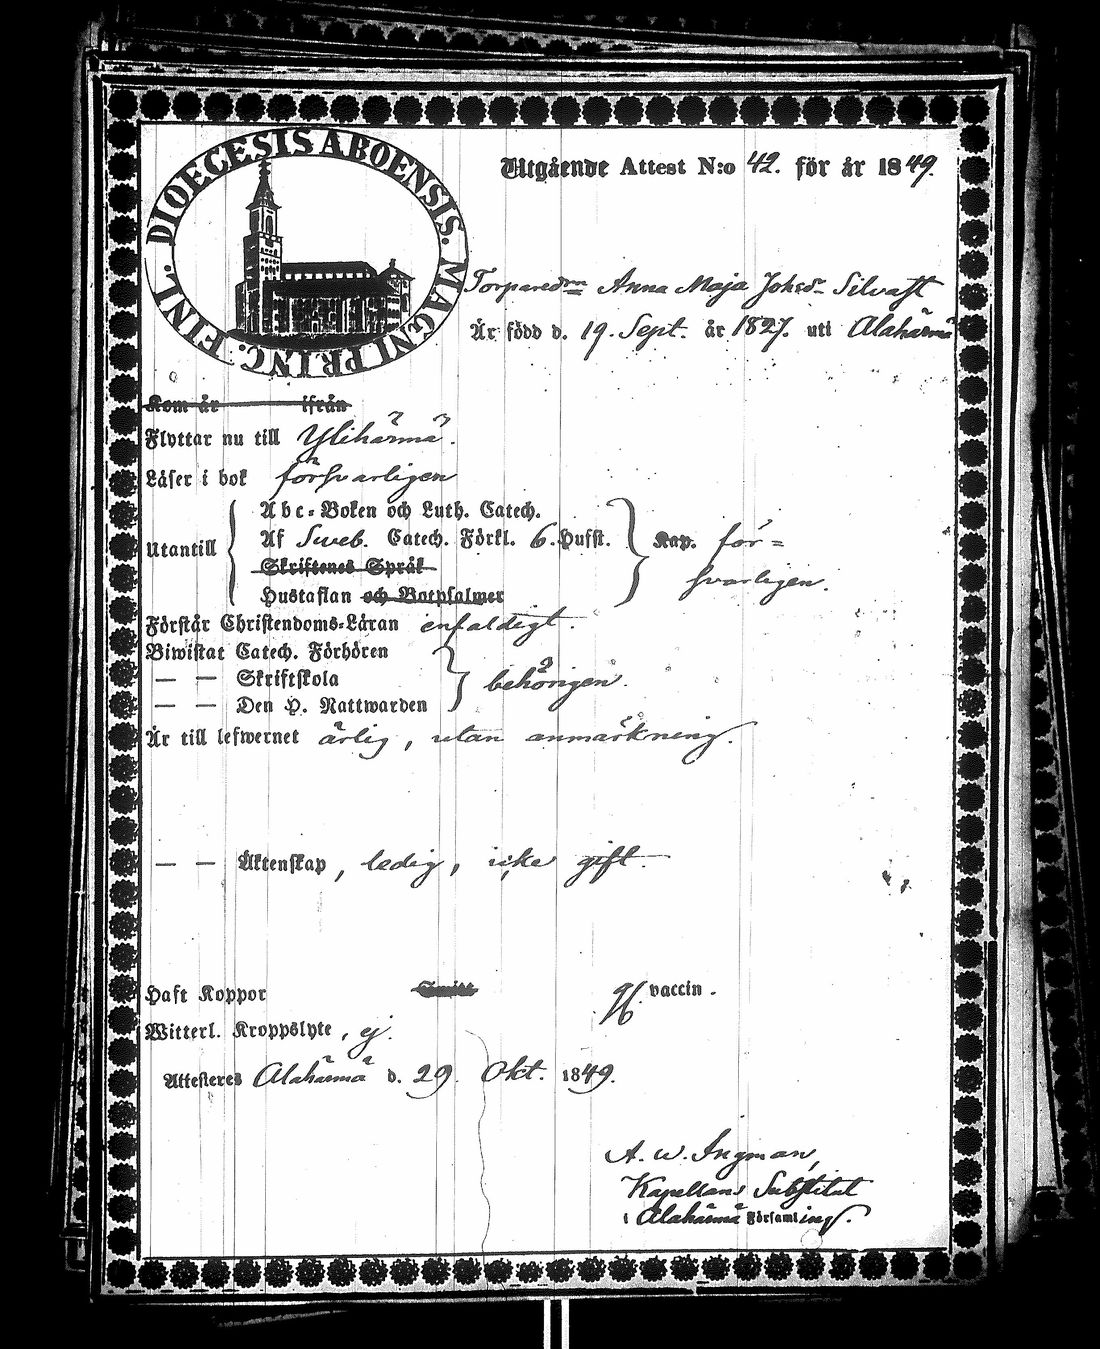 DIOECESIS ABOENSIS. MAGNI PRINC. FINL.
Utgående Attest N:o 42. för år 1849.
Torparedrn Anna Maja Johsdr Silvast
Är född d. 19. Sept. år 1827. uti Alahärmä
Kom år ifrån
Flyttar nu till Ylihärmä.
Läser i bok försvarligen
Utantill
Abc-Boken och Luth. Catech.
Af Sveb. Catech. Förkl. 6. Hufst.
Skriftenes Språk
Hustaflan och Botpsalmer
Kap. för=
svarligen.
Förstår Christendoms-Läran enfaldigt.
Biwistat Catech. Förhören
— — Skriftskola
— — Den H. Nattwarden
behörigen.
Är till lefwernet ärlig, utan anmärkning.
— — Äktenskap, ledig, icke gift
Haft Koppor vaccin.
Witterl. Kroppslyte, ej.
Attesteres Alahärmä d. 29. Okt. 1849.
A. W. Ingman,
Kapellans Substitut
i Alahärmä Församling.